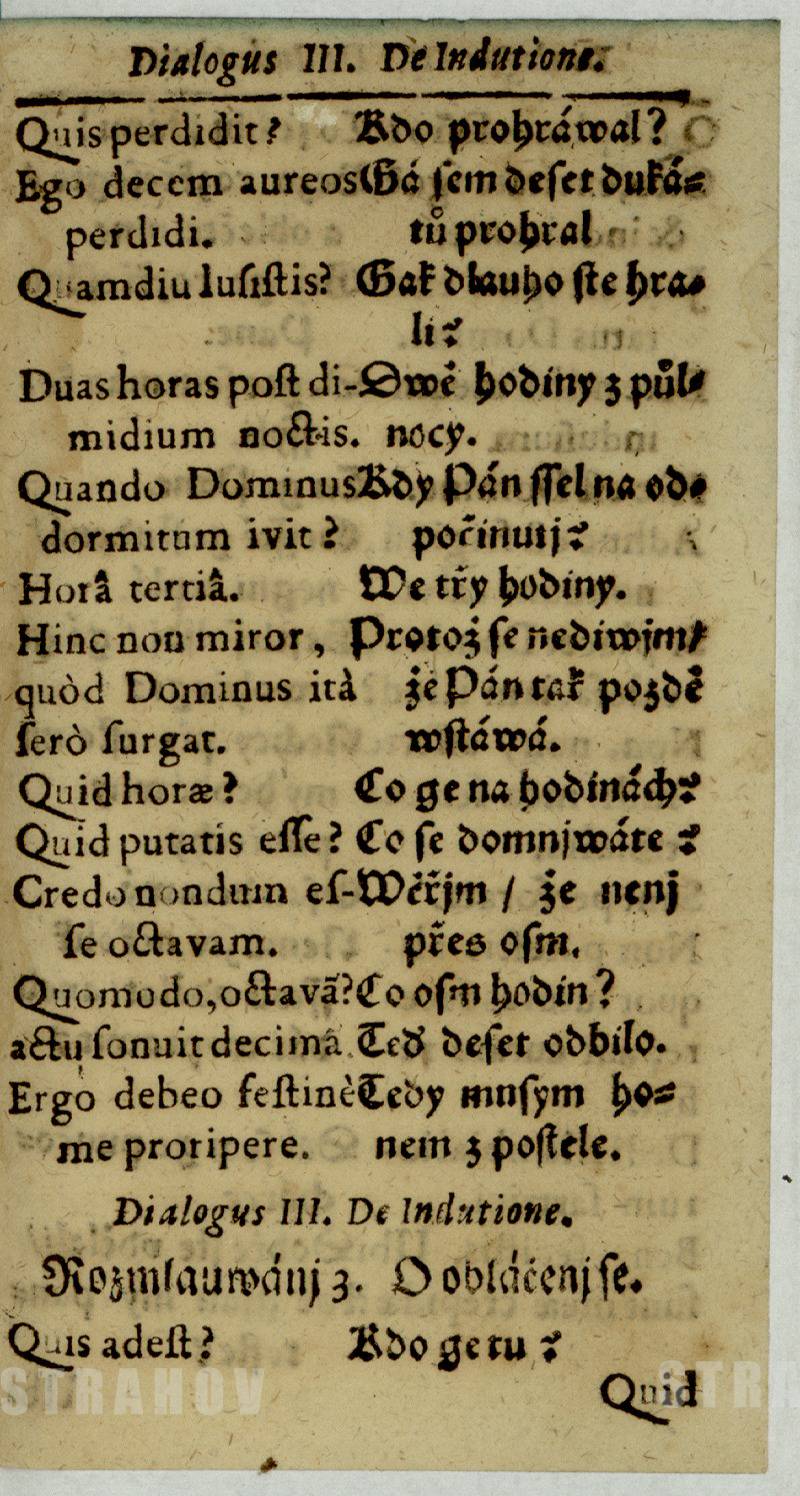 Dialogus III. De Indutione.
Quis perdidit? Kdo prohráwal?
Ego decem aureos Gá ſem deſet duká⸗
perdidi. tů prohral
Quamdiu luſiſtis? Gak dlauho ſte hra⸗
li?
Duas horas poſt di- Dwě hodiny z půl⸗
midium noctis. nocy.
Quando Dominus Kdy Pán ſſel na od⸗
dormitum ivit? počinutj?
Horâ tertiâ. We třy hodiny.
Hinc non miror, Protož ſe nediwjm/
quòd Dominus ità že Pán tak pozdě
ſerò ſurgat. wſtáwá.
Quid horæ? Co ge na hodinách?
Quid putatis eſſe? Co ſe domnjwáte?
Credo nondum eſ- Wěřjm / že nenj
ſe octavam. přes oſm.
Quomodo, octavã? Co oſm hodin?
actu ſonuit decimâ. Teď deſet odbilo.
Ergò debeo feſtinè Tedy muſým ho⸗
me proripere. nem z poſtele.
Dialogus III. De Indutione.
Rozmlauwánj 3. O obláčenj ſe.
Quis adeſt? Kdo ge tu?
Quid
STRAHOV STRA